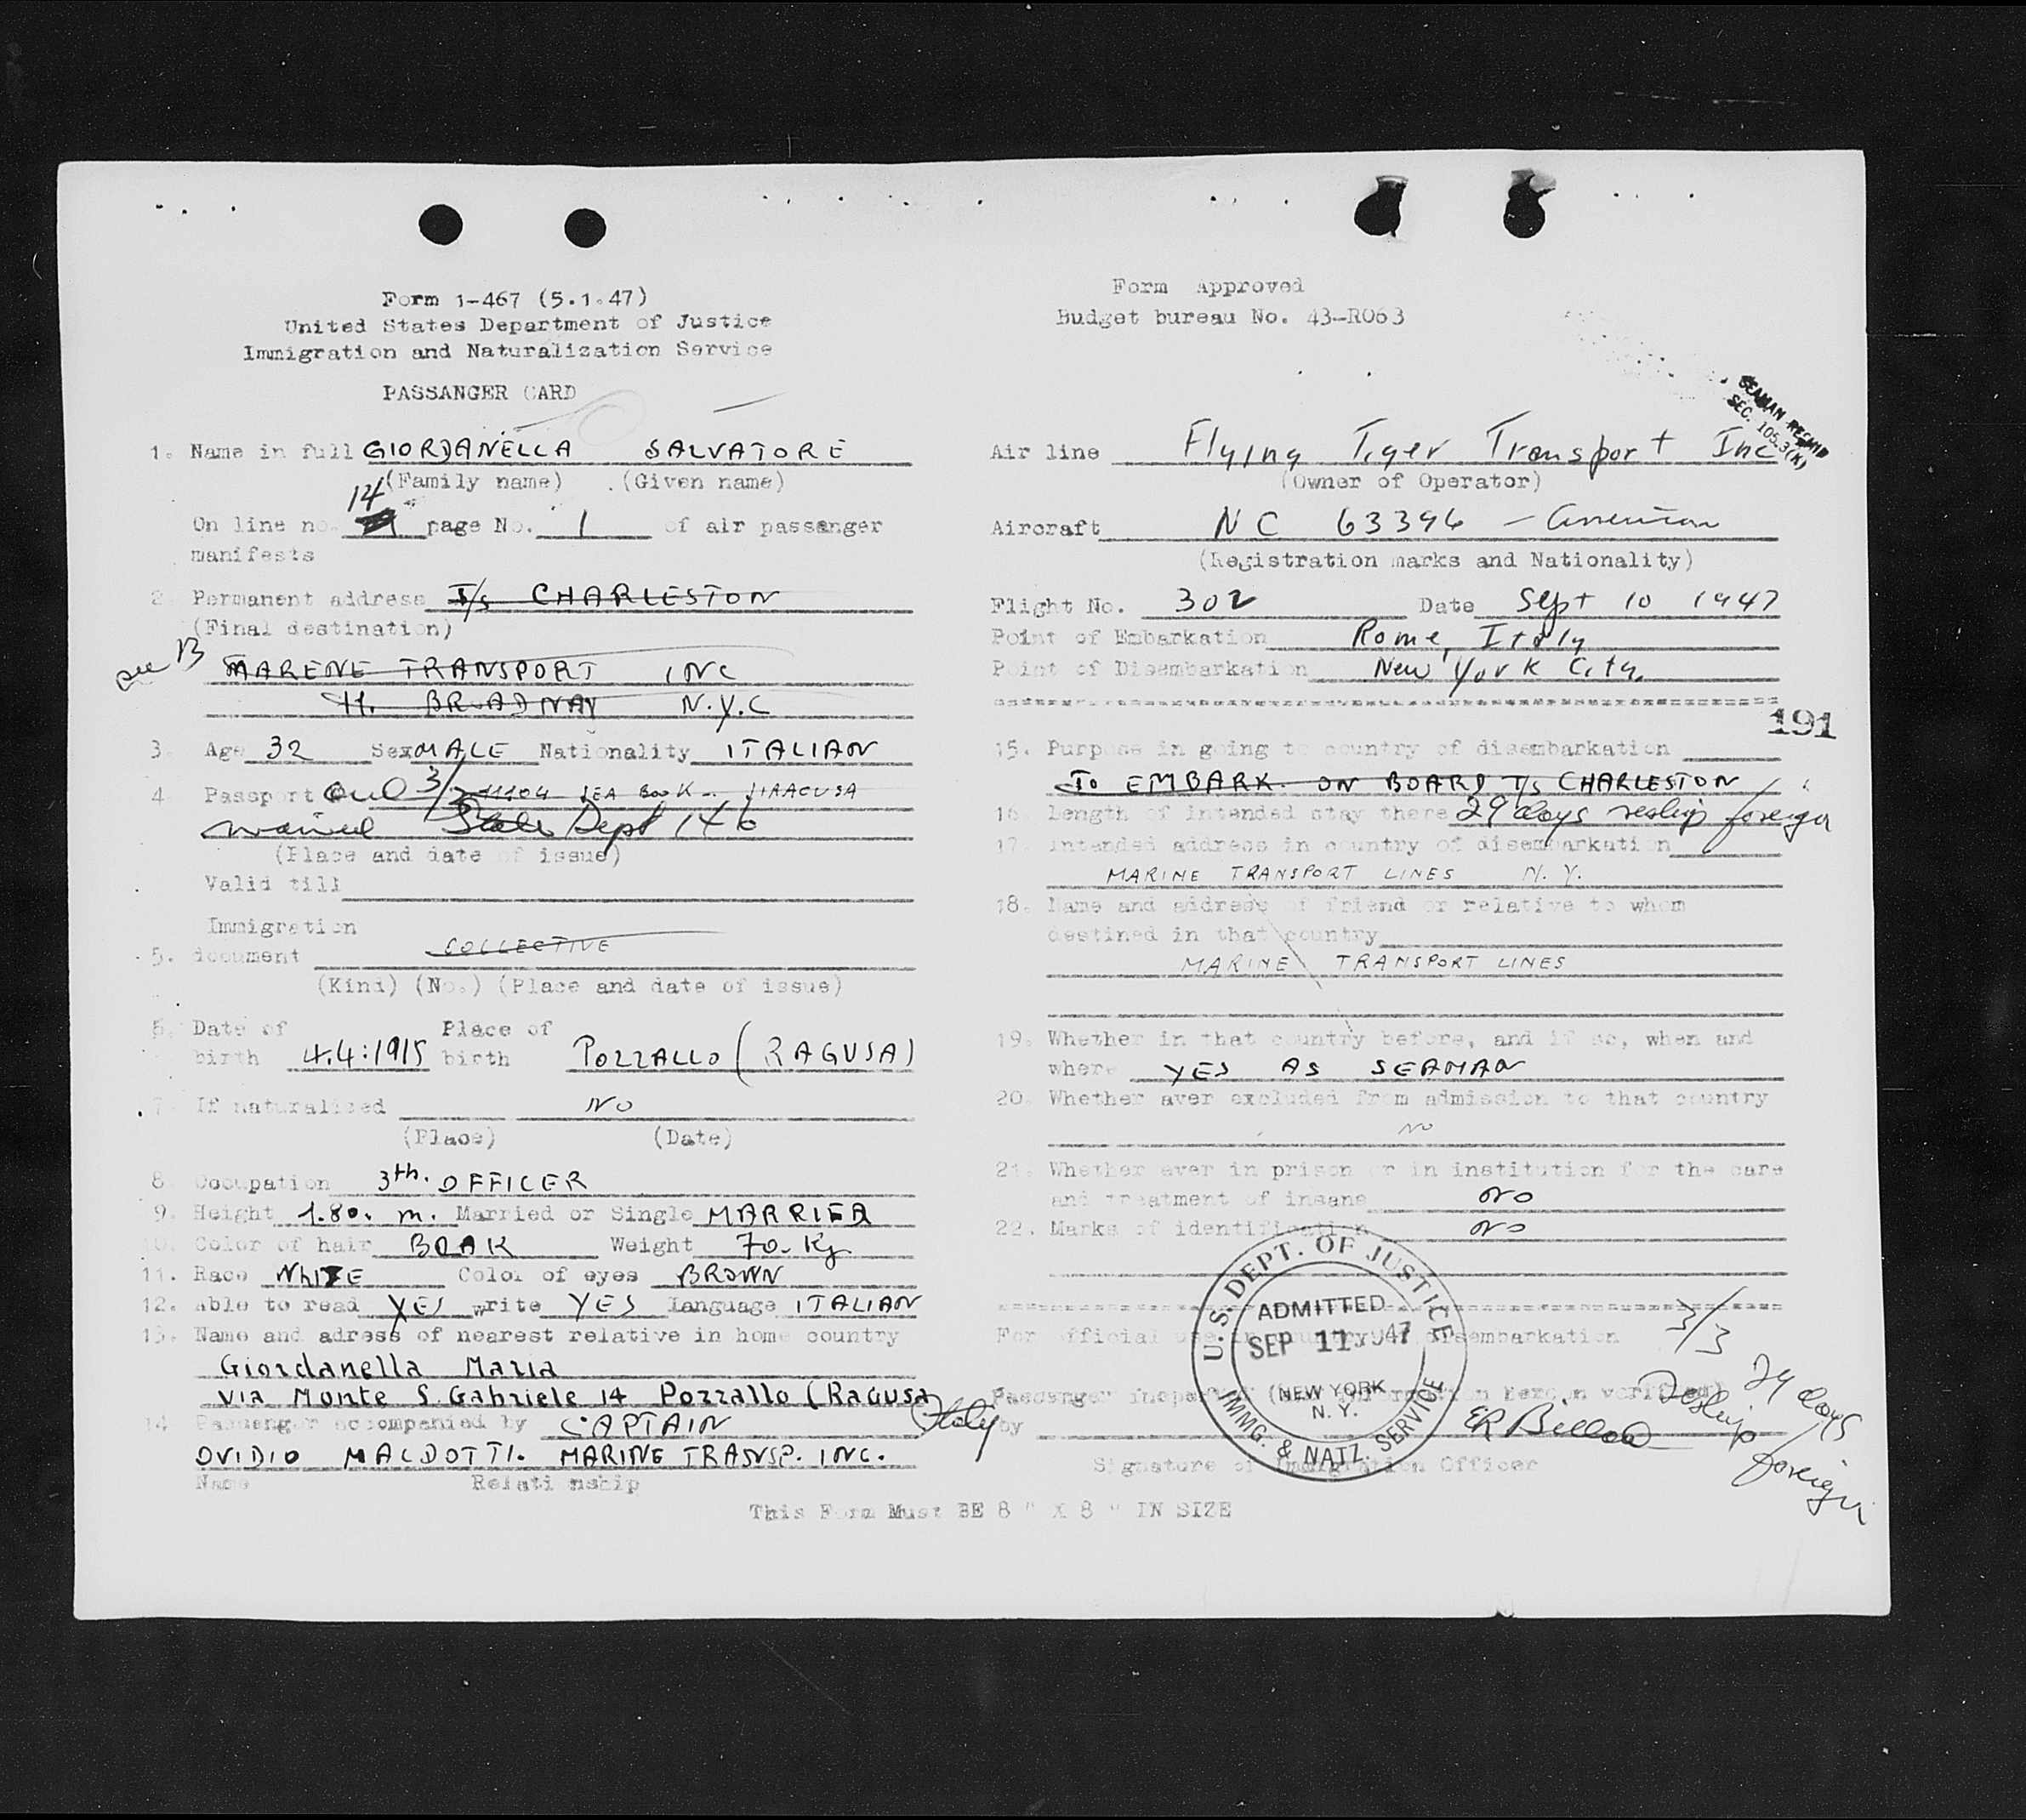 Form 1-467 (5.1.47)
United States Department of Justice
Immigration and Naturalization Service
PASSANGER CARD
1. Name in full GIORDANELLA SALVATORE
(Family name) (Given name)
14
On line no. page No. 1 of air passanger
manifests
2. Permanent address T/s CHARLESTON
(Final destination)
see 13
MARENE TRANSPORT INC
11. BROADWAY N.Y.C
3. Age 32 Sex MALE Nationality ITALIAN
4. Passport 3/3 11104 SEA BOOK - SIRACUSA
waived State Dept 146
(Place and date of issue)
Valid till
Immigration
5. document COLLECTIVE
(Kind) (No.) (Place and date of issue)
6. Date of Place of
birth 4.4:1915 birth POZZALLO (RAGUSA)
7. If naturalised NO
(Place) (Date)
8. Occupation 3th. OFFICER
9. Height 1.80. m. Married or Single MARRIED
10. Color of hair BLAK Weight 70. Kg
11. Race WhITE Color of eyes BROWN
12. able to read YES write YES language ITALIAN
13. Name and adress of nearest relative in home country
Giordanella Maria
Via Monte S. Gabriele 14 Pozzallo (Ragusa
Italy
14. Passenger accompanied by CAPTAIN
OVIDIO MALDOTTI. MARINE TRANSP. INC.
Name Relationship
Form Approved
Budget bureau No. 43-R063
SEAMAN
SEC. 105.3(K)
Air line Flying Tiger Transport Inc
(Owner of Operator)
Aircraft NC 63396 - American
(Registration marks and Nationality)
Flight No. 302 Date Sept 10 1947
Point of Embarkation Rome, Italy
Point of Disembarkation New York City.
191
15. Purpose in going to country of disembarkation
To EMBARK ON BOARD T/s CHARLESTON
16. Length of intended stay there 29 days reship foreign
17. Intended address in country of disembarkation
MARINE TRANSPORT LINES N. Y.
18. Name and address of friend or relative to whom
destined in that country
MARINE TRANSPORT LINES
19. Whether in that country before, and if so, when and
where YES AS SEAMAN
20. Whether aver excluded from admission to that country
NO
21. Whether ever in prison or in institution for the care
and treatment of insane NO
22. Marks of identification NO
For official use in country of disembarkation 3/3
Passenger inspector
29 days
reship
foreign
by
Signature of Immigration Officer
U. S. DEPT. OF JUSTICE
ADMITTED
SEP 11 1947
NEW YORK
N. Y.
IMMG. & NATZ. SERVICE
This Form Must BE 8 " X 8 " IN SIZE